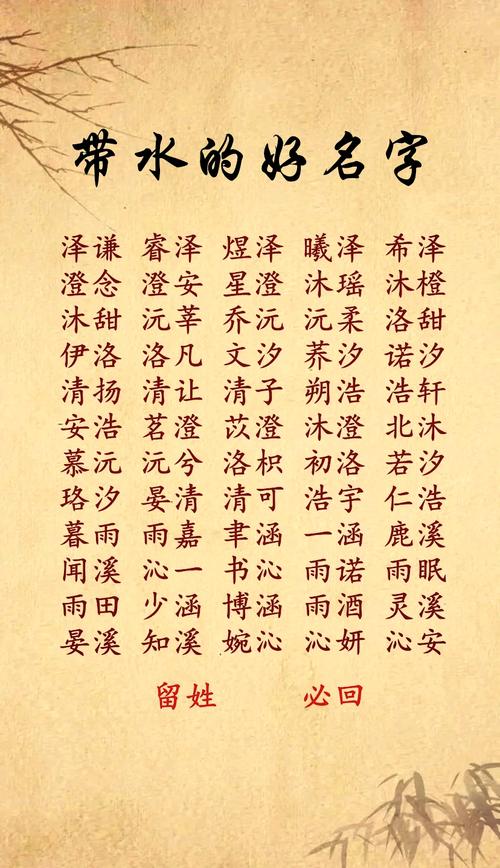 带水的好名字
泽谦 睿泽 煜泽 曦泽 希泽
澄念 澄安 星澄 沐瑶 沐橙
沐甜 沅莘 乔沅 沅柔 洛甜
伊洛 洛凡 文汐 荞汐 诺汐
清扬 清让 清子 朔浩 浩轩
安浩 茗澄 苡澄 沐澄 北沐
慕沅 沅兮 洛枳 初洛 若汐
珞汐 晏清 清可 浩宇 仁浩
暮雨 雨嘉 聿涵 一涵 鹿溪
闻溪 沁一 书沁 雨诺 雨眠
雨田 少涵 博涵 雨酒 灵溪
晏溪 知溪 婉沁 沁妍 沁安
留姓 必回